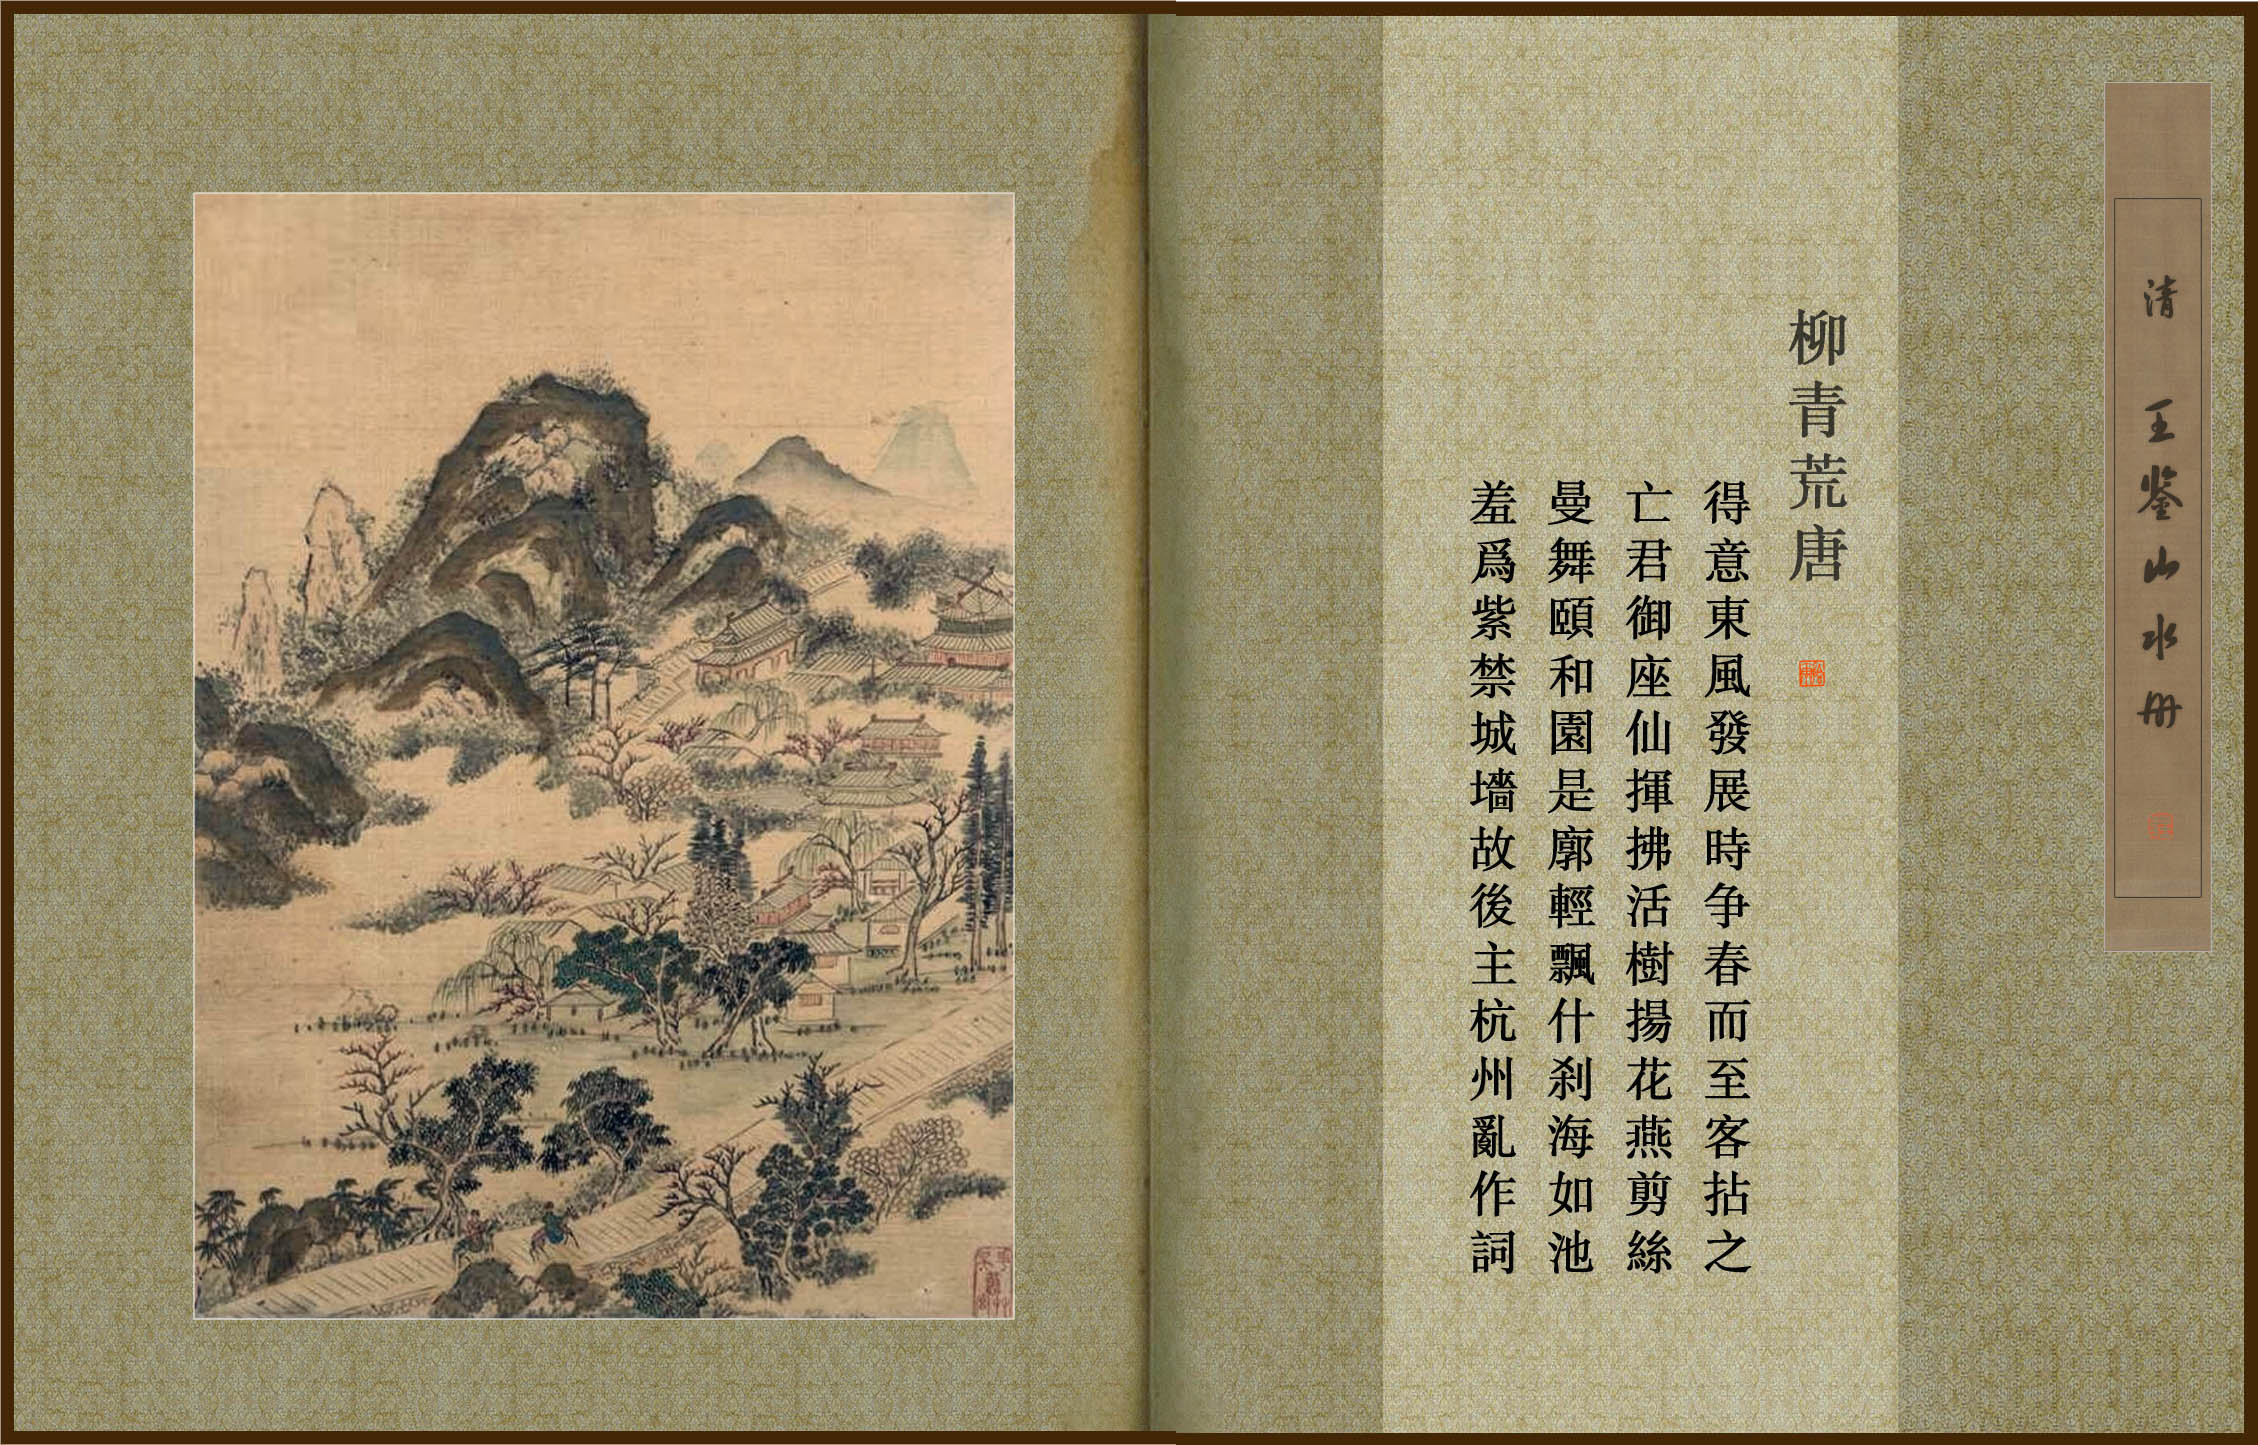 清 王鉴山水册
柳青荒唐
得意東風發展時争春而至客拈之
亡君御座仙揮拂活樹揚花燕剪絲
曼舞頤和園是廓輕飄什刹海如池
羞爲紫禁城墻故後主杭州亂作詞